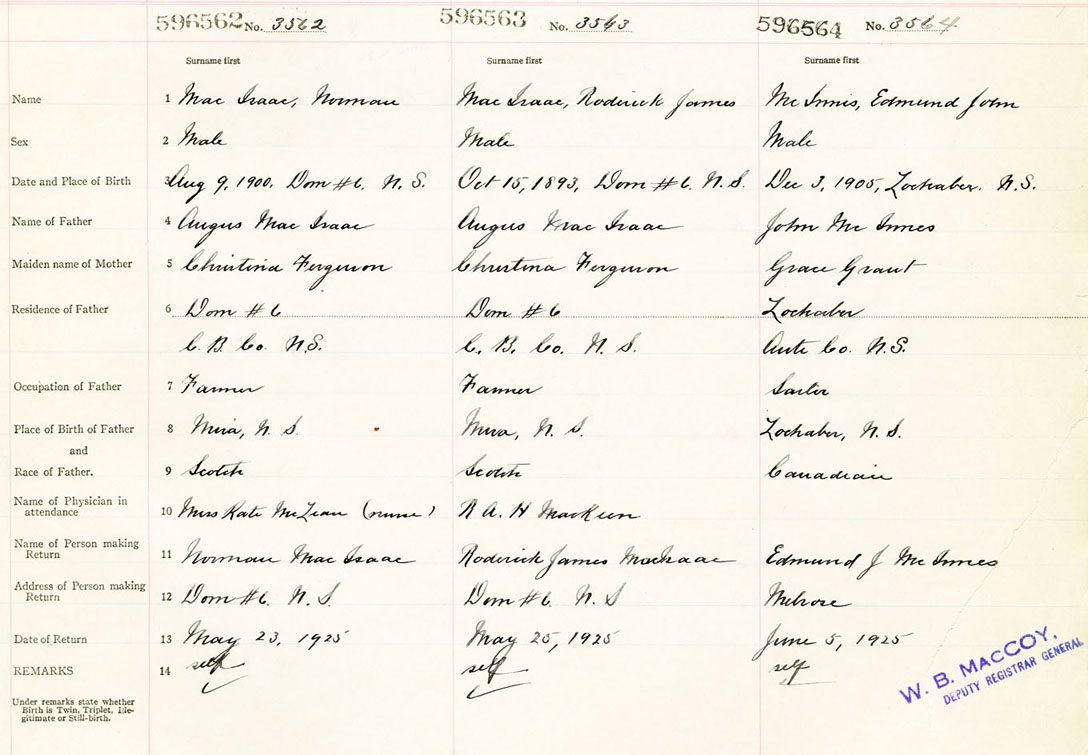 596562 No. 3562 596563 No. 3563 596564 No. 3564
Surname first Surname first Surname first
Name 1 Mac Isaac, Norman Mac Isaac, Roderick James Mc Innis, Edmund John
Sex 2 Male Male Male
Date and Place of Birth 3 Aug 9, 1900. Dom #6. N.S. Oct 15, 1893, Dom #6. N.S. Dec 3, 1905, Lochaber. N.S.
Name of Father 4 Angus Mac Isaac Angus Mac Isaac John Mc Innes
Maiden name of Mother 5 Christina Ferguson Christina Ferguson Grace Grant
Residence of Father 6 Dom #6 Dom #6 Lochaber
C. B. Co. N.S. C. B. Co. N. S. Ante Co. N.S.
Occupation of Father 7 Farmer Farmer
Place of Birth of Father 8 Mira, N. S. Mira, N. S. Lochaber, N. S.
and
Race of Father. 9 Scotch Scotch Canadian
Name of Physician in
attendance 10 Miss Kate McLean (nurse) R A. H MacKeen
Name of Person making
Return 11 Norman Mac Isaac Roderick James MacIsaac Edmund J Mc Innes
Address of Person making
Return 12 Dom #6. N. S. Dom #6. N. S Melrose
Date of Return 13 May 23, 1925 May 25, 1925 June 5, 1925
REMARKS 14 self self self
Under remarks state whether
Birth is Twin, Triplet, Ille-
gitimate or Still-birth.
W. B. MACCOY,
DEPUTY REGISTRAR GENERAL